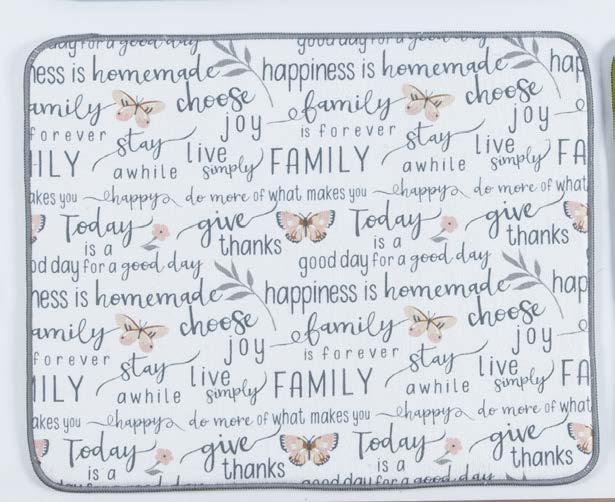 good day for a good day good day for a good day
ness is homemade happiness is homemade hap
family choose family choose
forever joy is forever joy
stay live stay live
ILY awhile simply FAMILY awhile simply FA
akes you happy do more of what makes you happy do more of what
Today give Today give
is a thanks is a thanks
od day for a good day good day for a good day
ness is homemade happiness is homemade hap
amily choose family choose
forever joy is forever joy
stay live stay live
ILY awhile simply FAMILY awhile simply FA
akes you happy do more of what makes you happy do more of what
Today give Today give
is a thanks is a thanks
good day for a good day